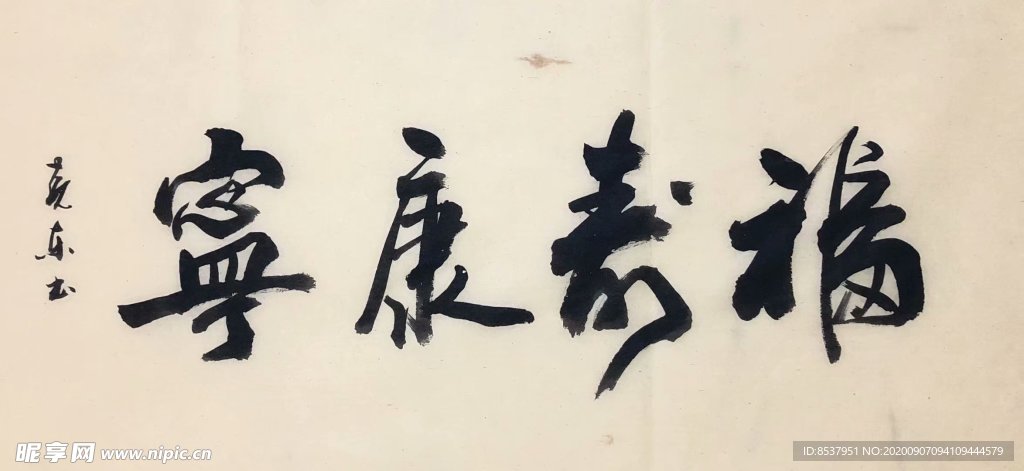 福壽康寧
堯東书
昵享网 www.nipic.cn
ID:8537951 NO:20200907094109444579